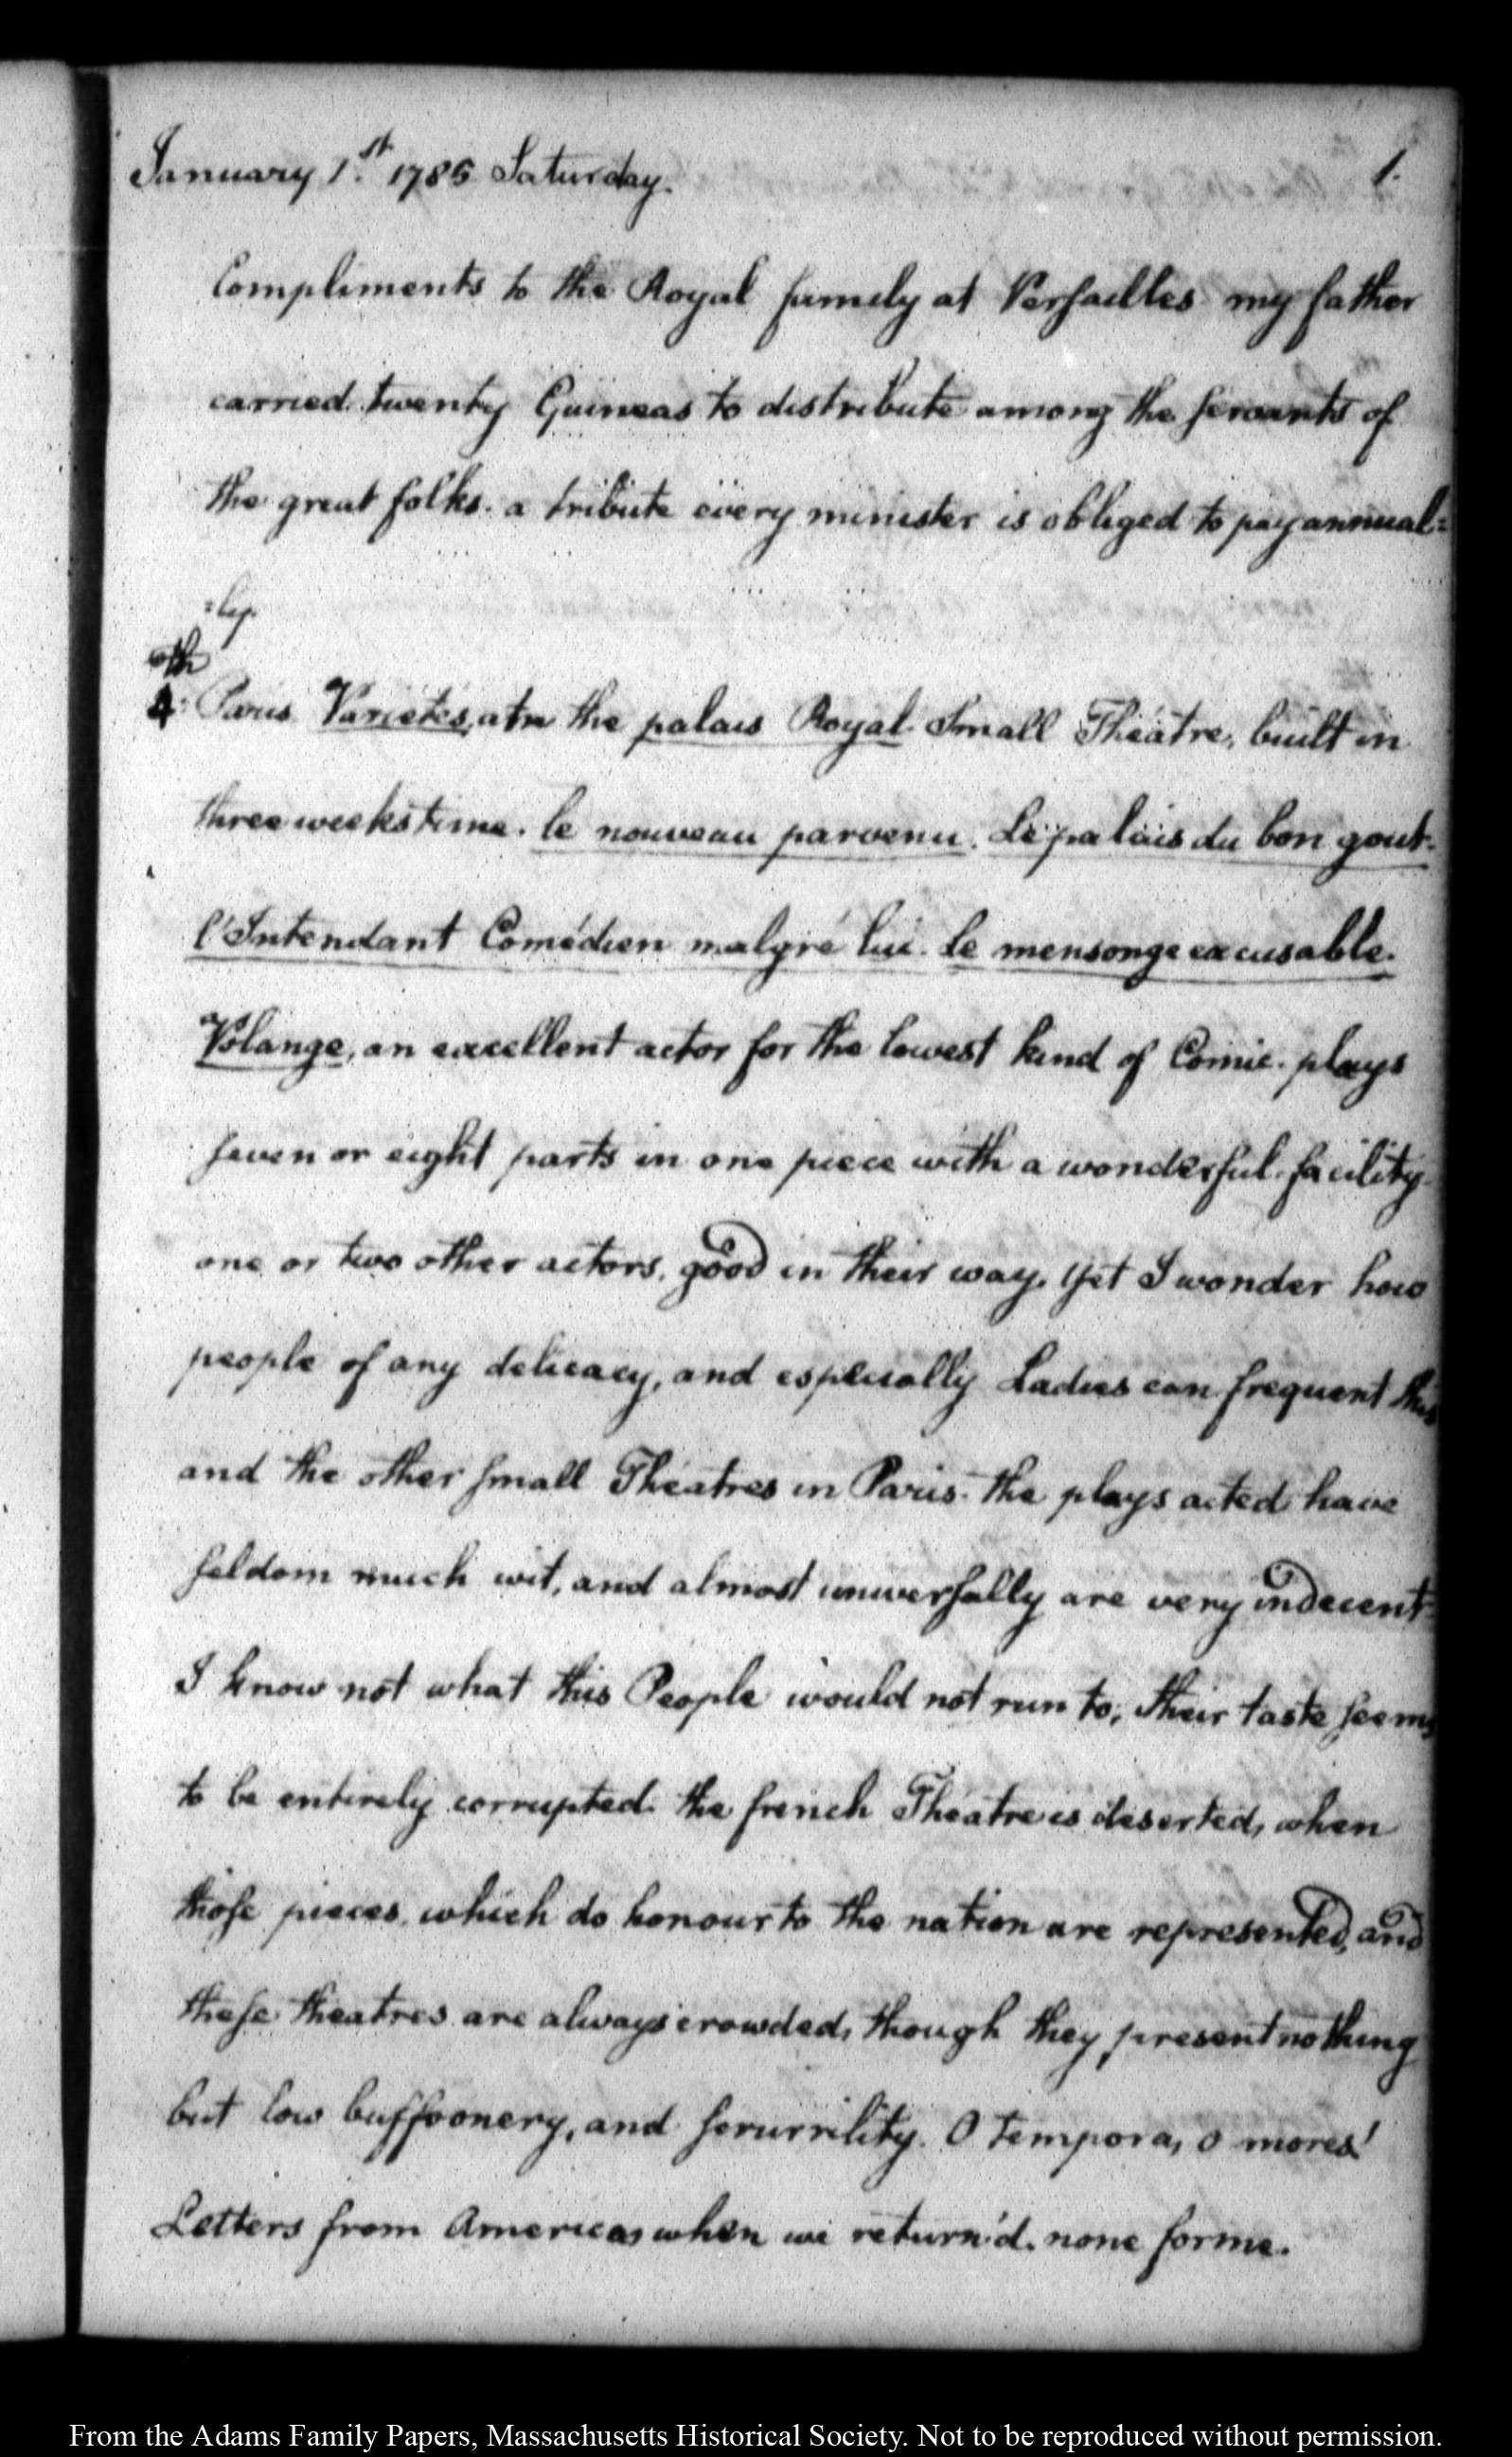 January 1.st 1785 Saturday.
1.
Compliments to the Royal family at Versailles my father
carried twenty Guineas to distribute among the servants of
the great folks. a tribute every minister is obliged to pay annual=
=ly.
th
4. Paris Varietés, at the palais Royal. Small Théatre, built in
three weeks time. le nouveau parvenu. Le palais du bon gout.
l'Intendant Comédien malgré lui. le mensonge excusable.
Volange, an excellent actor for the lowest kind of Comic. plays
seven or eight parts in one piece with a wonderful facility.
one or two other actors, good in their way. yet I wonder how
people of any delicacy, and especially Ladies can frequent this
and the other small Theatres in Paris. the plays acted have
seldom much wit, and almost universally are very indecent.
I know not what this People would not run to; their taste seems
to be entirely corrupted. the french Theatre is deserted, when
those pieces which do honour to the nation are represented, and
these theatres are always crowded, though they present nothing
but low buffoonery, and scurrility. O tempora, o mores!
Letters from America, when we return'd. none for me.
From the Adams Family Papers, Massachusetts Historical Society. Not to be reproduced without permission.